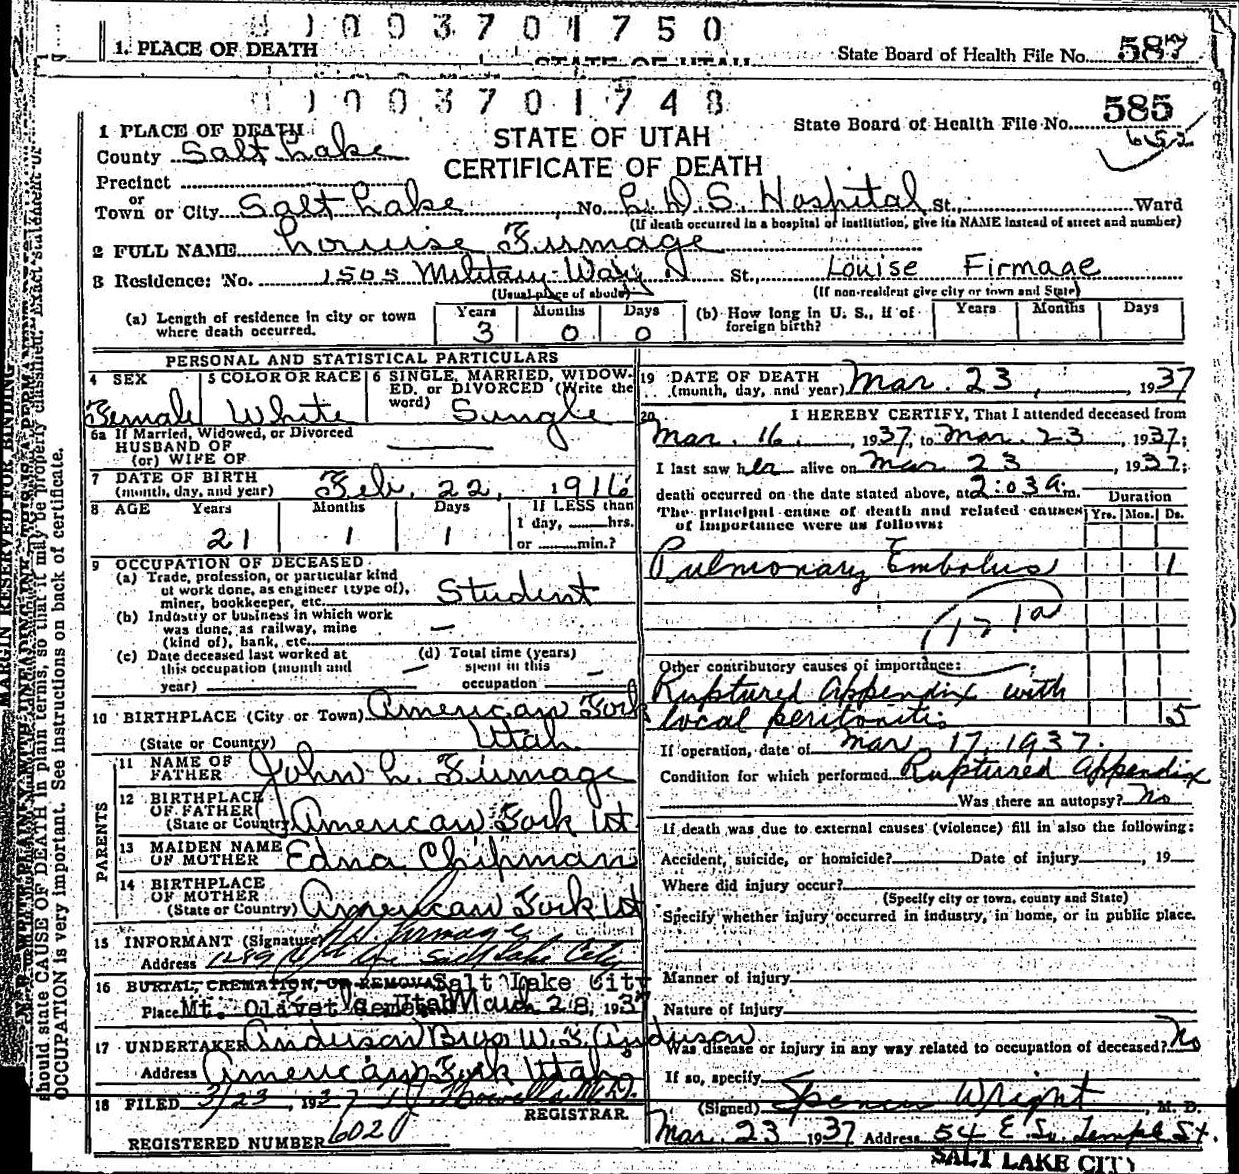 0 1 0 0 3 7 0 1 7 5 0
1. PLACE OF DEATH State Board of Health File No. 587
STATE OF UTAH
0 1 0 0 3 7 0 1 7 4 8
585
State Board of Health File No.
652
1 PLACE OF DEATH
STATE OF UTAH
County Salt Lake
CERTIFICATE OF DEATH
Precinct
or
Town or City Salt Lake, No. L. D. S. Hospital St., Ward
(If death occurred in a hospital or institution, give its NAME instead of street and number)
2 FULL NAME Louise Firmage
3 Residence: No. 1505 Military Way St., Louise Firmage
(Usual place of abode) (If non-resident give city or town and State)
(a) Length of residence in city or town where death occurred. Years 3 Months 0 Days 0 (b) How long in U. S., if of foreign birth? Years Months Days
PERSONAL AND STATISTICAL PARTICULARS
4 SEX 5 COLOR OR RACE 6 SINGLE, MARRIED, WIDOWED, or DIVORCED (Write the word)
Female White Single
6a If Married, Widowed, or Divorced
HUSBAND OF
(or) WIFE OF
7 DATE OF BIRTH
(month, day, and year) Feb. 22, 1916
8 AGE Years Months Days If LESS than
1 day, hrs.
21 1 1 or min.?
9 OCCUPATION OF DECEASED
(a) Trade, profession, or particular kind
of work done, as engineer (type of),
miner, bookkeeper, etc. Student
(b) Industry or business in which work
was done, as railway, mine
(kind of), bank, etc. —
(c) Date deceased last worked at
this occupation (month and
year) (d) Total time (years)
spent in this
occupation —
10 BIRTHPLACE (City or Town) American Fork
(State or Country) Utah
PARENTS
11 NAME OF
FATHER John L. Firmage
12 BIRTHPLACE
OF FATHER
(State or Country) American Fork Ut
13 MAIDEN NAME
OF MOTHER Edna Chipman
14 BIRTHPLACE
OF MOTHER
(State or Country) American Fork Ut
15 INFORMANT (Signature) Firmage
Address Salt Lake City
16 BURIAL, CREMATION, OR REMOVAL Salt Lake City
Place Mt. Olivet Cemetery Utah March 28, 1937
17 UNDERTAKER Anderson Bros W. F. Anderson
Address American Fork Utah
18 FILED 3/23 1937
REGISTRAR.
REGISTERED NUMBER 602
19 DATE OF DEATH
(month, day, and year) Mar. 23, 1937
20 I HEREBY CERTIFY, That I attended deceased from
Mar. 16, 1937, to Mar. 23, 1937;
I last saw her alive on Mar 23, 1937;
death occurred on the date stated above, at 2:03 a. m. Duration
The principal cause of death and related causes
of importance were as follows: Yrs. Mos. Ds.
Pulmonary Embolus 1
Other contributory causes of importance:
Ruptured Appendix with
local peritonitis 5
If operation, date of Mar. 17, 1937.
Condition for which performed Ruptured Appendix
Was there an autopsy? No
If death was due to external causes (violence) fill in also the following:
Accident, suicide, or homicide? Date of injury , 19
Where did injury occur?
(Specify city or town, county and State)
Specify whether injury occurred in industry, in home, or in public place.
Manner of injury
Nature of injury
Was disease or injury in any way related to occupation of deceased? No
If so, specify
(Signed) Spencer Wright, M. D.
Mar. 23 1937 Address 54 E. So. Temple St.
SALT LAKE CITY
MARGIN RESERVED FOR BINDING
should state CAUSE OF DEATH in plain terms, so that it may be properly classified. Exact statement of
OCCUPATION is very important. See instructions on back of certificate.